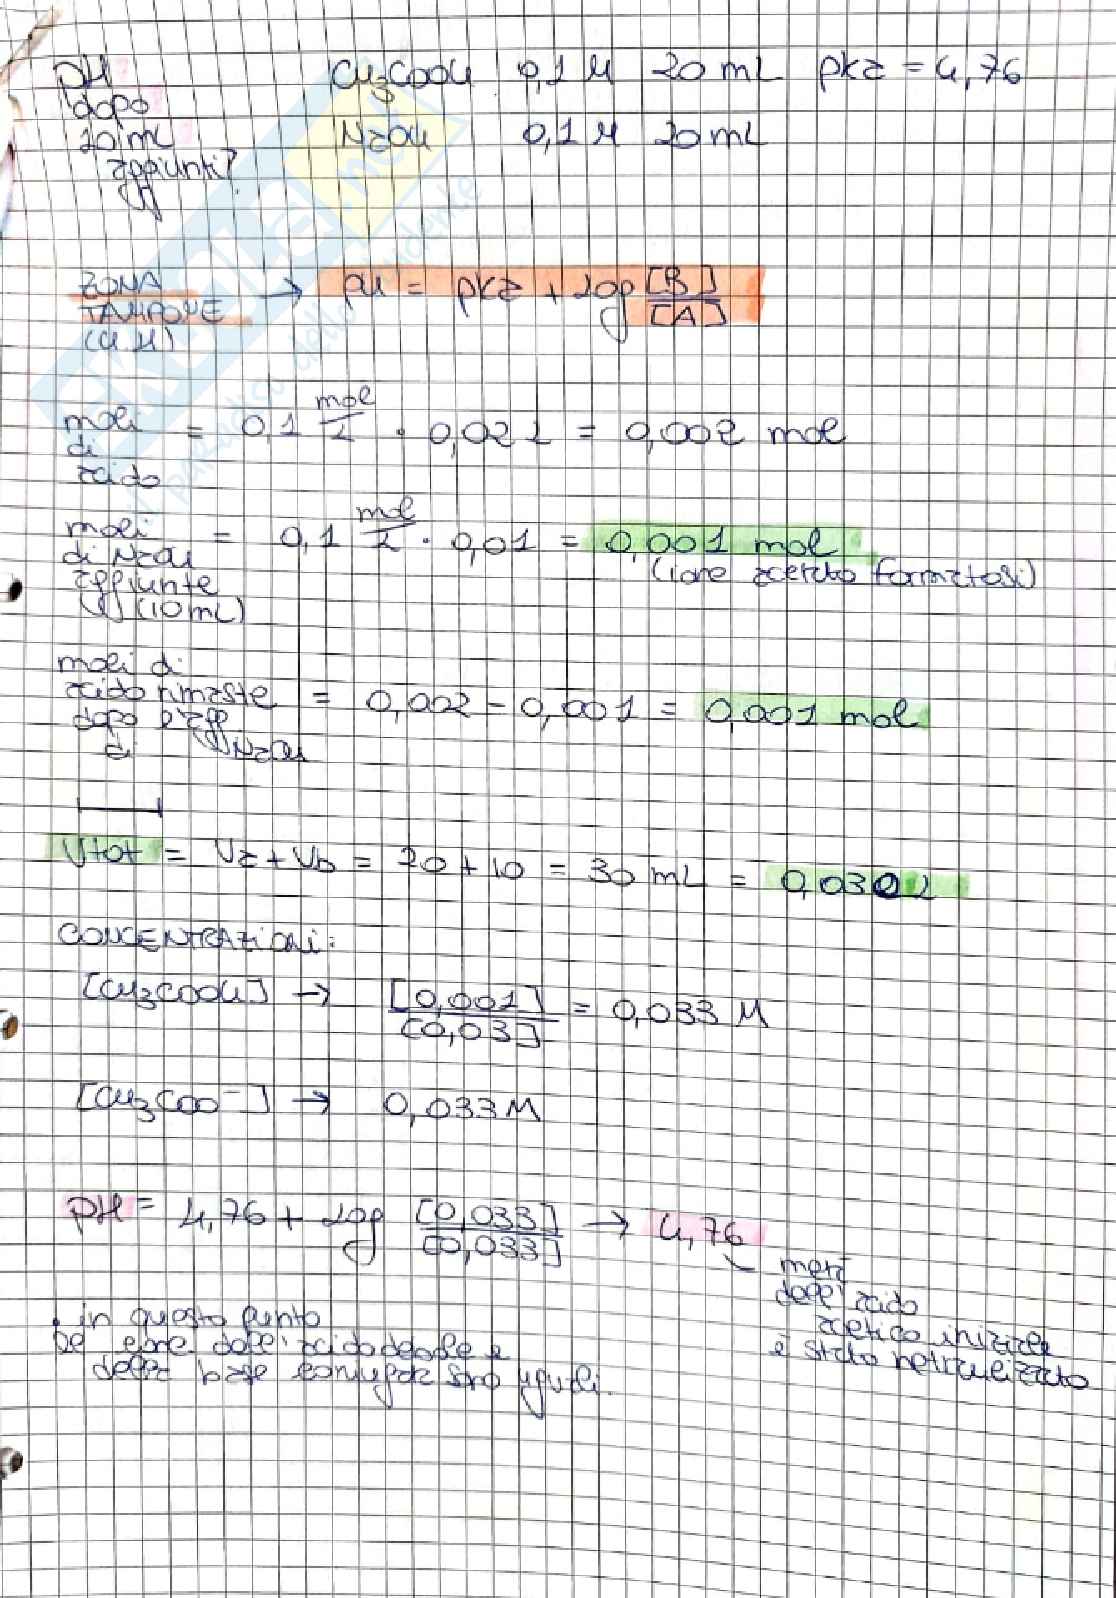 pH CH₃COOH 0,1 M 20 mL pka = 4,76
dopo
10 mL NaOH 0,1 M 20 mL
aggiunti?
ZONA TAMPONE (H.H) → pH = pka + log [B]/[A]
moli di acido = 0,1 mol/L · 0,02 L = 0,002 mol
moli di NaOH aggiunte (10 mL) = 0,1 mol/L · 0,01 = 0,001 mol
(ione acetato formatosi)
moli di
acido rimaste = 0,002 - 0,001 = 0,001 mol
dopo l'agg
di NaOH
Vtot = Va + Vb = 20 + 10 = 30 mL = 0,030 L
CONCENTRAZIONI:
[CH₃COOH] → [0,001]/[0,03] = 0,033 M
[CH₃COO⁻] → 0,033 M
pH = 4,76 + log [0,033]/[0,033] → 4,76
metà
dell'acido
acetico iniziale
è stato netrualizzato
in questo punto
le conc dell'acido debole e
della base coniugata sono uguali.